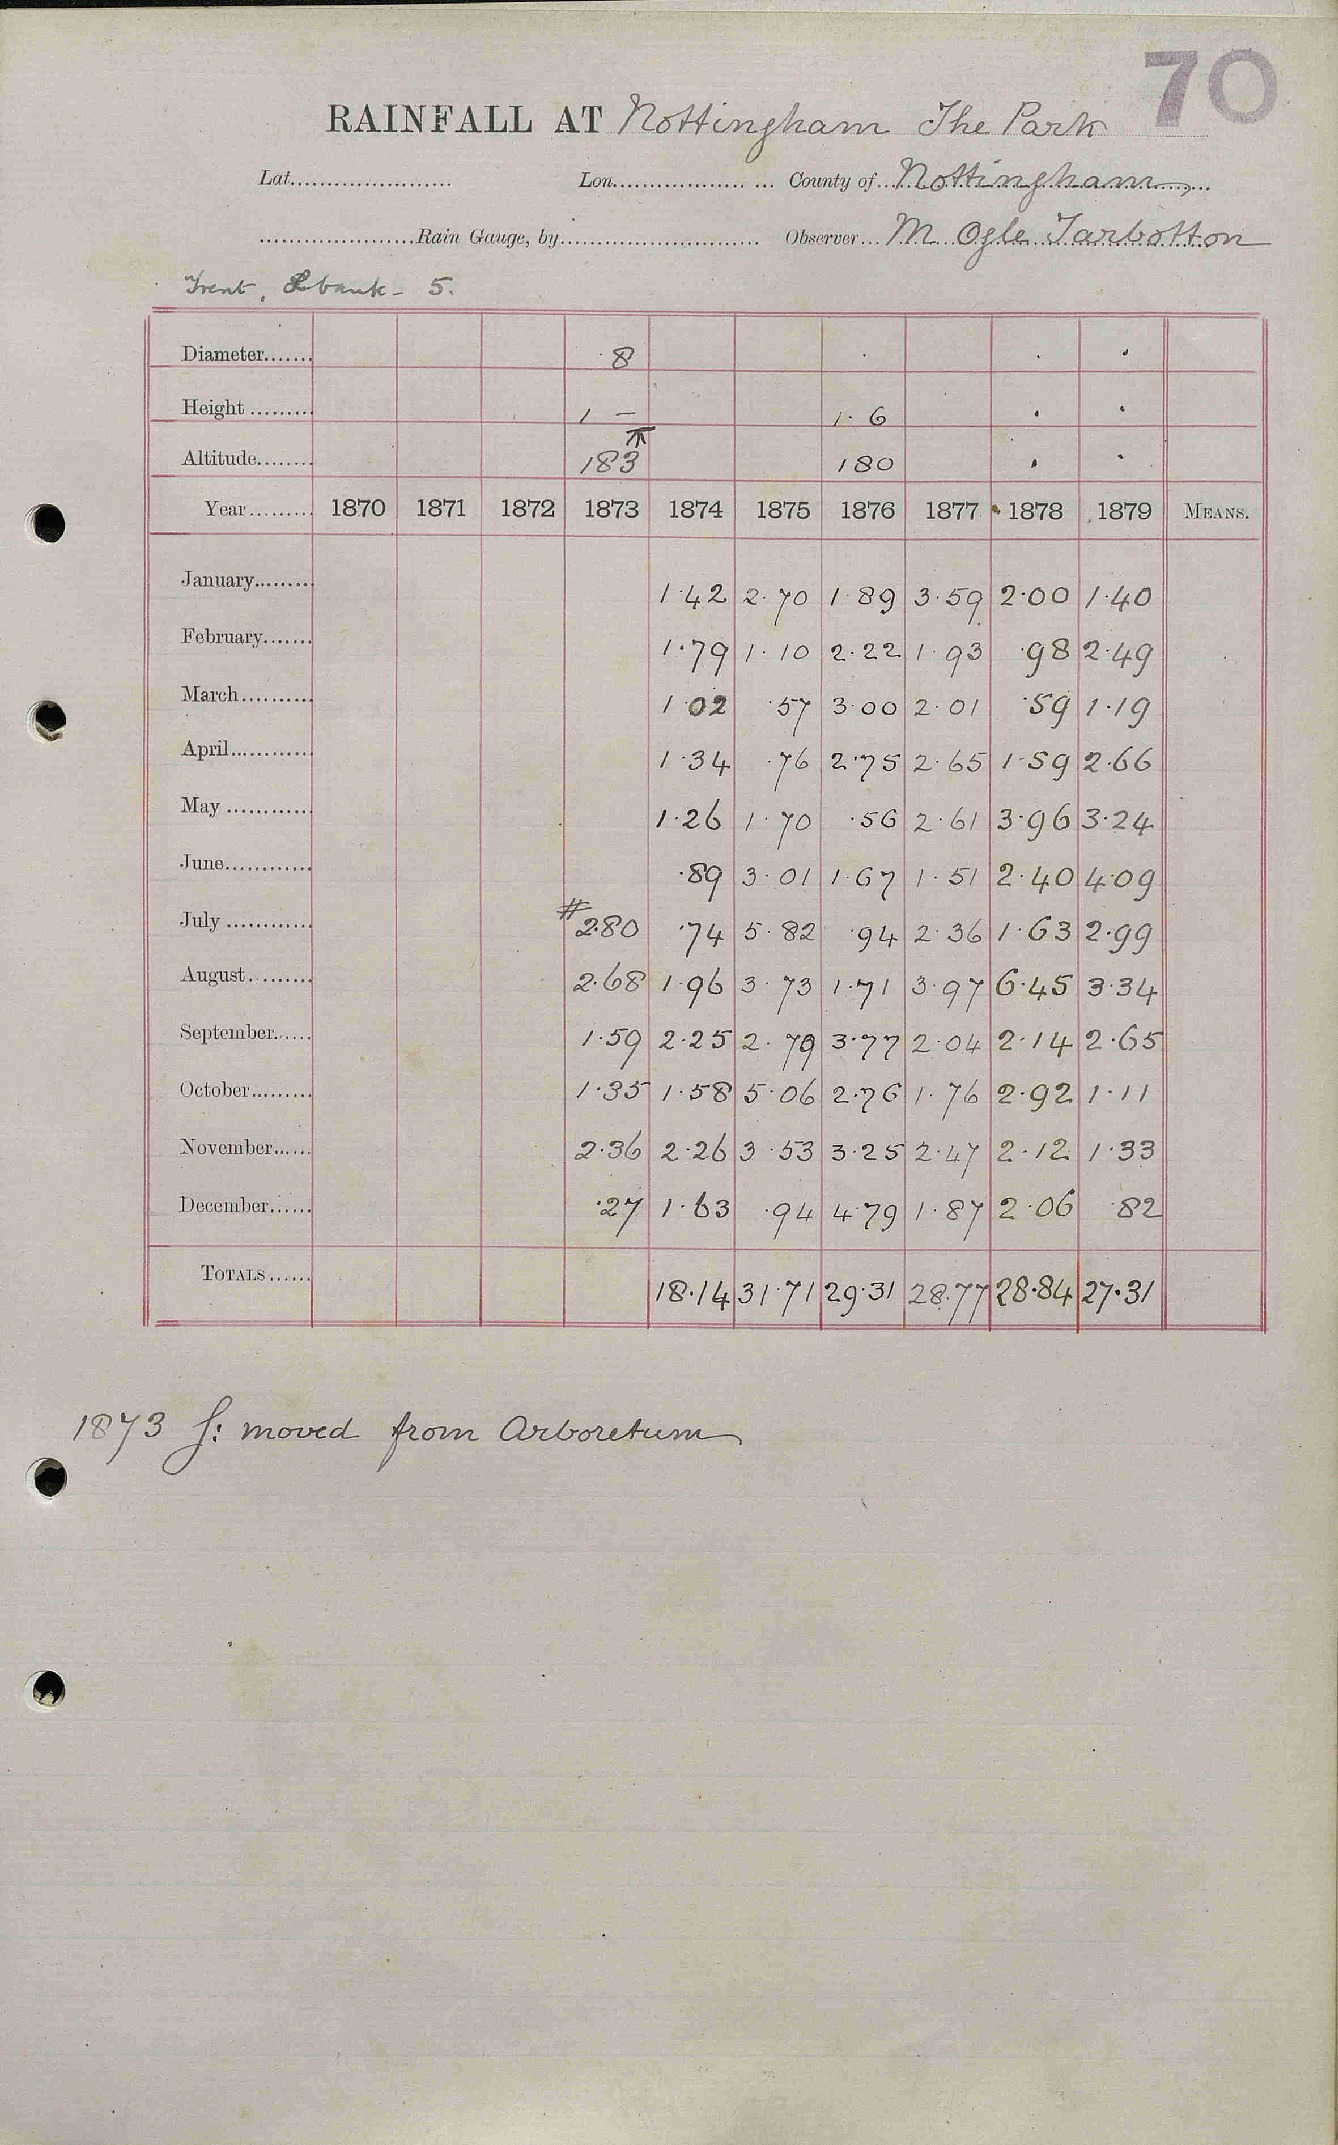 70
RAINFALL AT Nottingham The Park
Lat...................... Lon.................. ... County of...Nottingham......
.....................Rain Gauge, by........................... Observer...M Ogle Tarbotton
Trent, bank - 5.
Diameter....... 8 . . .
Height ......... 1 – 1.6 . .
Altitude........ 183 180 . .
Year......... 1870 1871 1872 1873 1874 1875 1876 1877 1878 1879 MEANS.
January......... 1.42 2.70 1.89 3.59 2.00 1.40
February....... 1.79 1.10 2.22 1.93 .98 2.49
March.......... 1.02 .57 3.00 2.01 .59 1.19
April............ 1.34 .76 2.75 2.65 1.59 2.66
May ............ 1.26 1.70 .56 2.61 3.96 3.24
June............. .89 3.01 1.67 1.51 2.40 4.09
July ............ # 2.80 .74 5.82 .94 2.36 1.63 2.99
August.......... 2.68 1.96 3.73 1.71 3.97 6.45 3.34
September...... 1.59 2.25 2.79 3.77 2.04 2.14 2.65
October......... 1.35 1.58 5.06 2.76 1.76 2.92 1.11
November...... 2.36 2.26 3.53 3.25 2.47 2.12 1.33
December...... .27 1.63 .94 4.79 1.87 2.06 .82
TOTALS...... 18.14 31.71 29.31 28.77 28.84 27.31
1873 f: moved from Arboretum